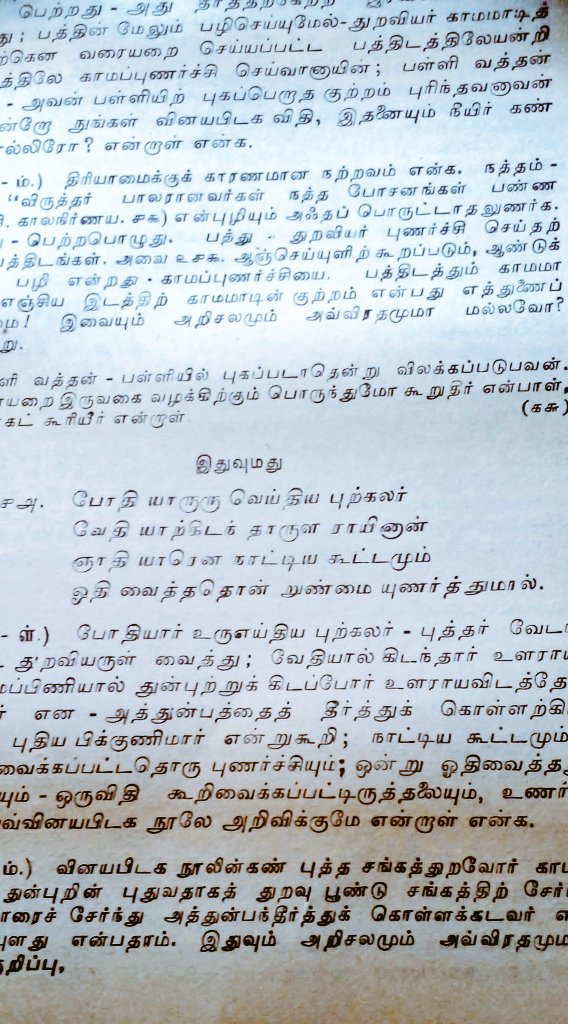 பெற்றது - அது தீர்த்தற்கேற்ற
து; பத்தின் மேலும் பழிசெய்யுமேல்-துறவியர் காமமாடித்
ற்கென வரையறை செய்யப்பட்ட பத்திடத்திலேயன்றி
த்திலே காமப்புணர்ச்சி செய்வானாயின்; பள்ளி வத்தன்
- அவன் பள்ளியிற் புகப்பெறாத குற்றம் புரிந்தவனாவன்
ன்றே நுங்கள் வினயபிடக விதி, இதனையும் நீயிர் கண்
சொல்லிரோ? என்றாள் என்க.
- ம்.) திரியாமைக்குக் காரணமான நற்றவம் என்க. நத்தம் -
"விருத்தர் பாலரானவர்கள் நத்த போசனங்கள் பண்ண
ி. காலநிர்ணய. ௪௬) என்புழியும் அஃதப் பொருட்டாதலுணர்க.
- பெற்றபொழுது. பத்து - துறவியர் புணர்ச்சி செய்தற்
பத்திடங்கள். அவை ௨௪௧. ஆஞ்செய்யுளிற் கூறப்படும், ஆண்டுக்
பழி என்றது - காமப்புணர்ச்சியை. பத்திடத்தும் காமமா
எஞ்சிய இடத்திற் காமமாடின் குற்றம் என்பது எத்துணைப்
மை! இவையும் அறிசலமும் அவ்விரதமுமா மல்லவோ?
று.
ளி வத்தன் - பள்ளியில் புகப்படாதென்று விலக்கப்படுபவன்.
யறை இருவகை வழக்கிற்கும் பொருந்துமோ கூறுதிர் என்பாள்,
கட் கூரியீர் என்றாள் (௧௬)
இதுவுமது
௪௮. போதி யாருரு வெய்திய புற்கலர்
வேதி யாற்கிடந் தாருள ராயினான்
ஞாதி யாரென நாட்டிய கூட்டமும்
ஓதி வைத்ததொன் றுண்மை யுணர்த்துமால்.
- ள்.) போதியார் உருஎய்திய புற்கலர் - புத்தர் வேடங்
த் துறவியருள் வைத்து; வேதியால் கிடந்தார் உளராய
மப்பிணியால் துன்புற்றுக் கிடப்போர் உளராயவிடத்தே
ர் என - அத்துன்பத்தைத் தீர்த்துக் கொள்ளற்கி
புதிய பிக்குணிமார் என்றுகூறி; நாட்டிய கூட்டமும்
வைக்கப்பட்டதொரு புணர்ச்சியும்; ஒன்று ஓதிவைத்தது
யும் - ஒருவிதி கூறிவைக்கப்பட்டிருத்தலையும், உணர்
வ்வினயபிடக நூலே அறிவிக்குமே என்றாள் என்க.
ம்.) வினயபிடக நூலின்கண் புத்த சங்கத்துறவோர் காம
துன்புறின் புதுவதாகத் துறவு பூண்டு சங்கத்திற் சேர்
ாரைச் சேர்ந்து அத்துன்பந்தீர்த்துக் கொள்ளக்கடவர் எ
புளது என்பதாம். இதுவும் அறிசலமும் அவ்விரதமும
குறிப்பு,